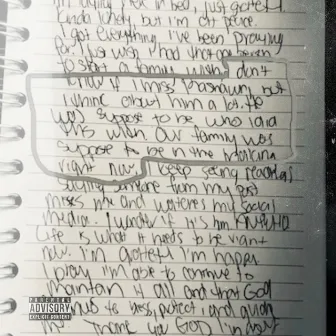 I'm laying here in bed, just grateful
kinda lonely but i'm at peace.
I got everything I've been praying
for. I just wish I had that one person
to start a family with. I don't
know if I miss Rashawn, but
I think about him a lot. He
was suppose to be who I did
this with. Our family was
suppose to be in the making
right now. I keep seeing
saying someone from my past
miss me and watches my social
media. I wonder if it's him
Life is what it needs to be right
now. I'm grateful I'm happy.
I pray I'm able to continue to
maintain all and that God
continues to bless, protect, and guide
me. Thank you God
PARENTAL
ADVISORY
EXPLICIT CONTENT